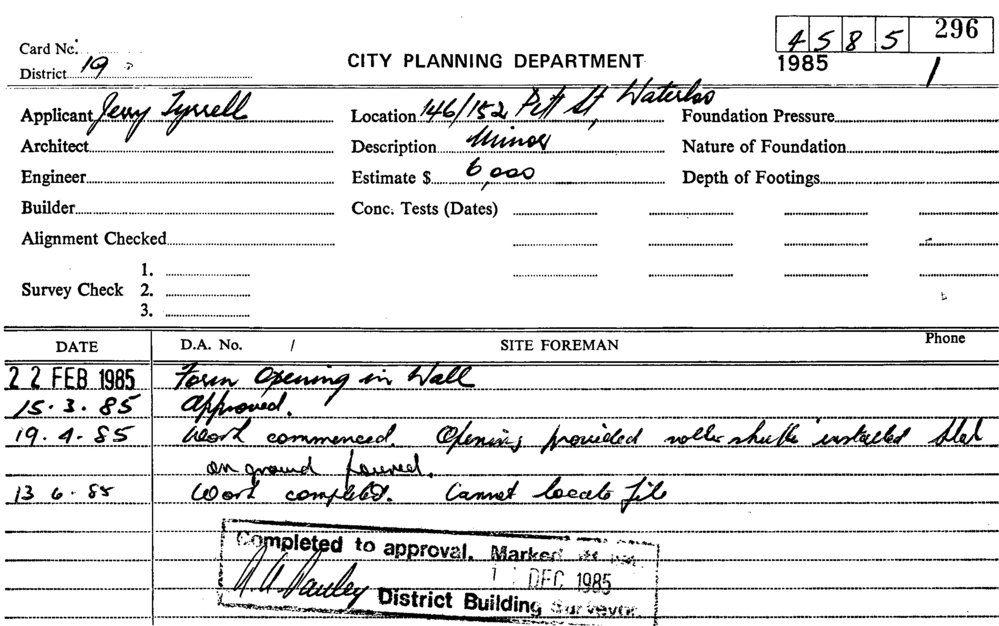 4585 296
Card No.
CITY PLANNING DEPARTMENT
1985
District 19
1
Applicant Jerry Tyrrell
Location 146/152 Pitt St, Waterloo
Foundation Pressure
Architect
Description Minor
Nature of Foundation
Engineer
Estimate $ 6,000
Depth of Footings
Builder
Conc. Tests (Dates)
Alignment Checked
1.
Survey Check 2.
3.
DATE D.A. No. / SITE FOREMAN Phone
22 FEB 1985 Form Opening in Wall
15.3.85 Approved.
19.4.85 Work commenced. Opening provided roller shutter installed Slab
on ground poured.
13 6.85 Work completed. Cannot locate file
Completed to approval. Marked
DEC 1985
District Building Surveyor